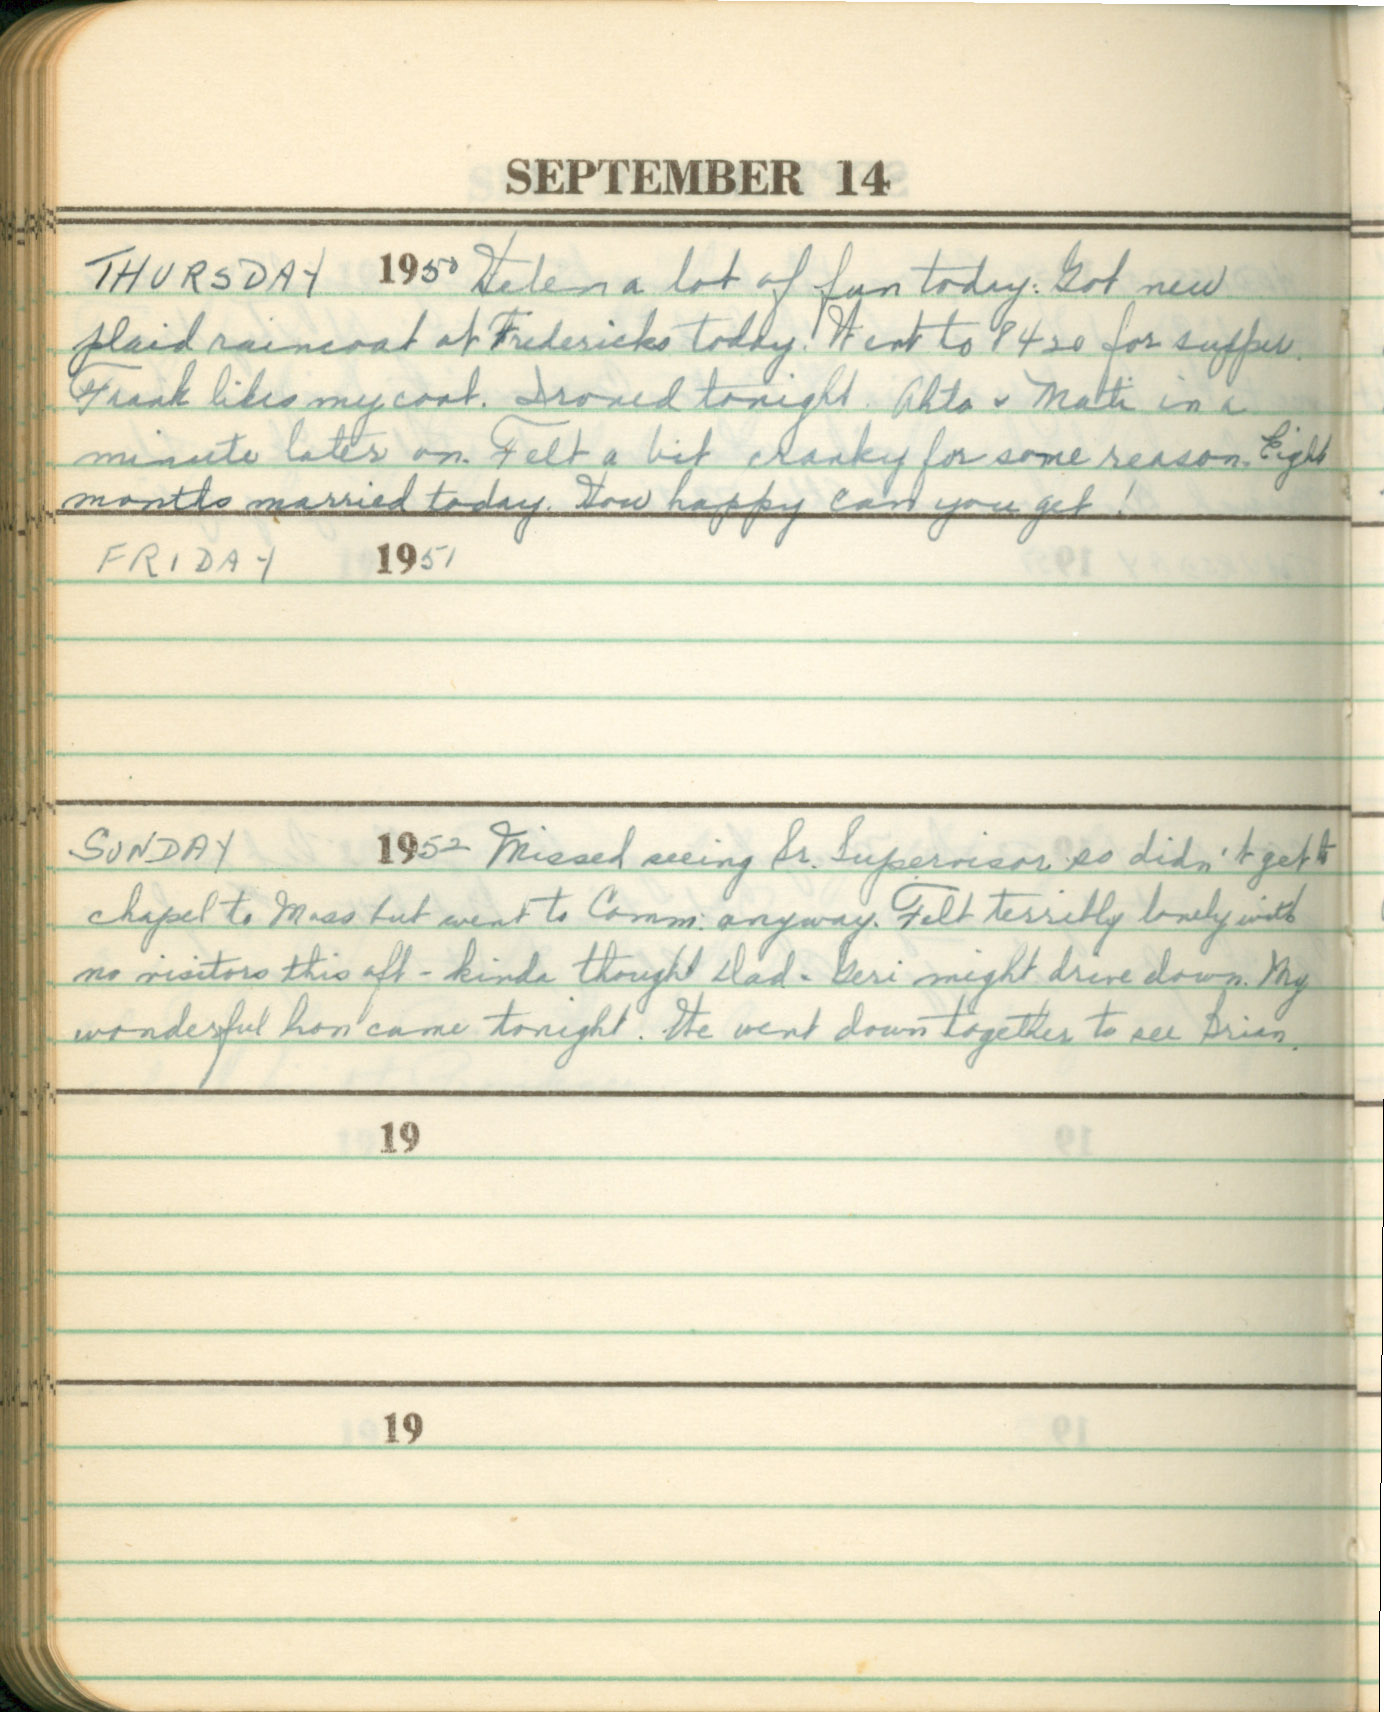 SEPTEMBER 14
THURSDAY 1950 Helen a lot of fun today. Got new
plaid raincoat at Fredericks today! Went to 8420 for supper.
Frank likes my coat. Ironed tonight. Ahto & Mati in a
minute later on. Felt a bit cranky for some reason. Eight
months married today. How happy can you get!
FRIDAY 1951
SUNDAY 1952 Missed seeing Sr. Supervisor so didn't get to
chapel to Mass but went to Comm. anyway. Felt terribly lonely with
no visitors this aft - kinda thought Dad & Geri might drive down. My
wonderful hon came tonight. We went down together to see Brian.
19
19